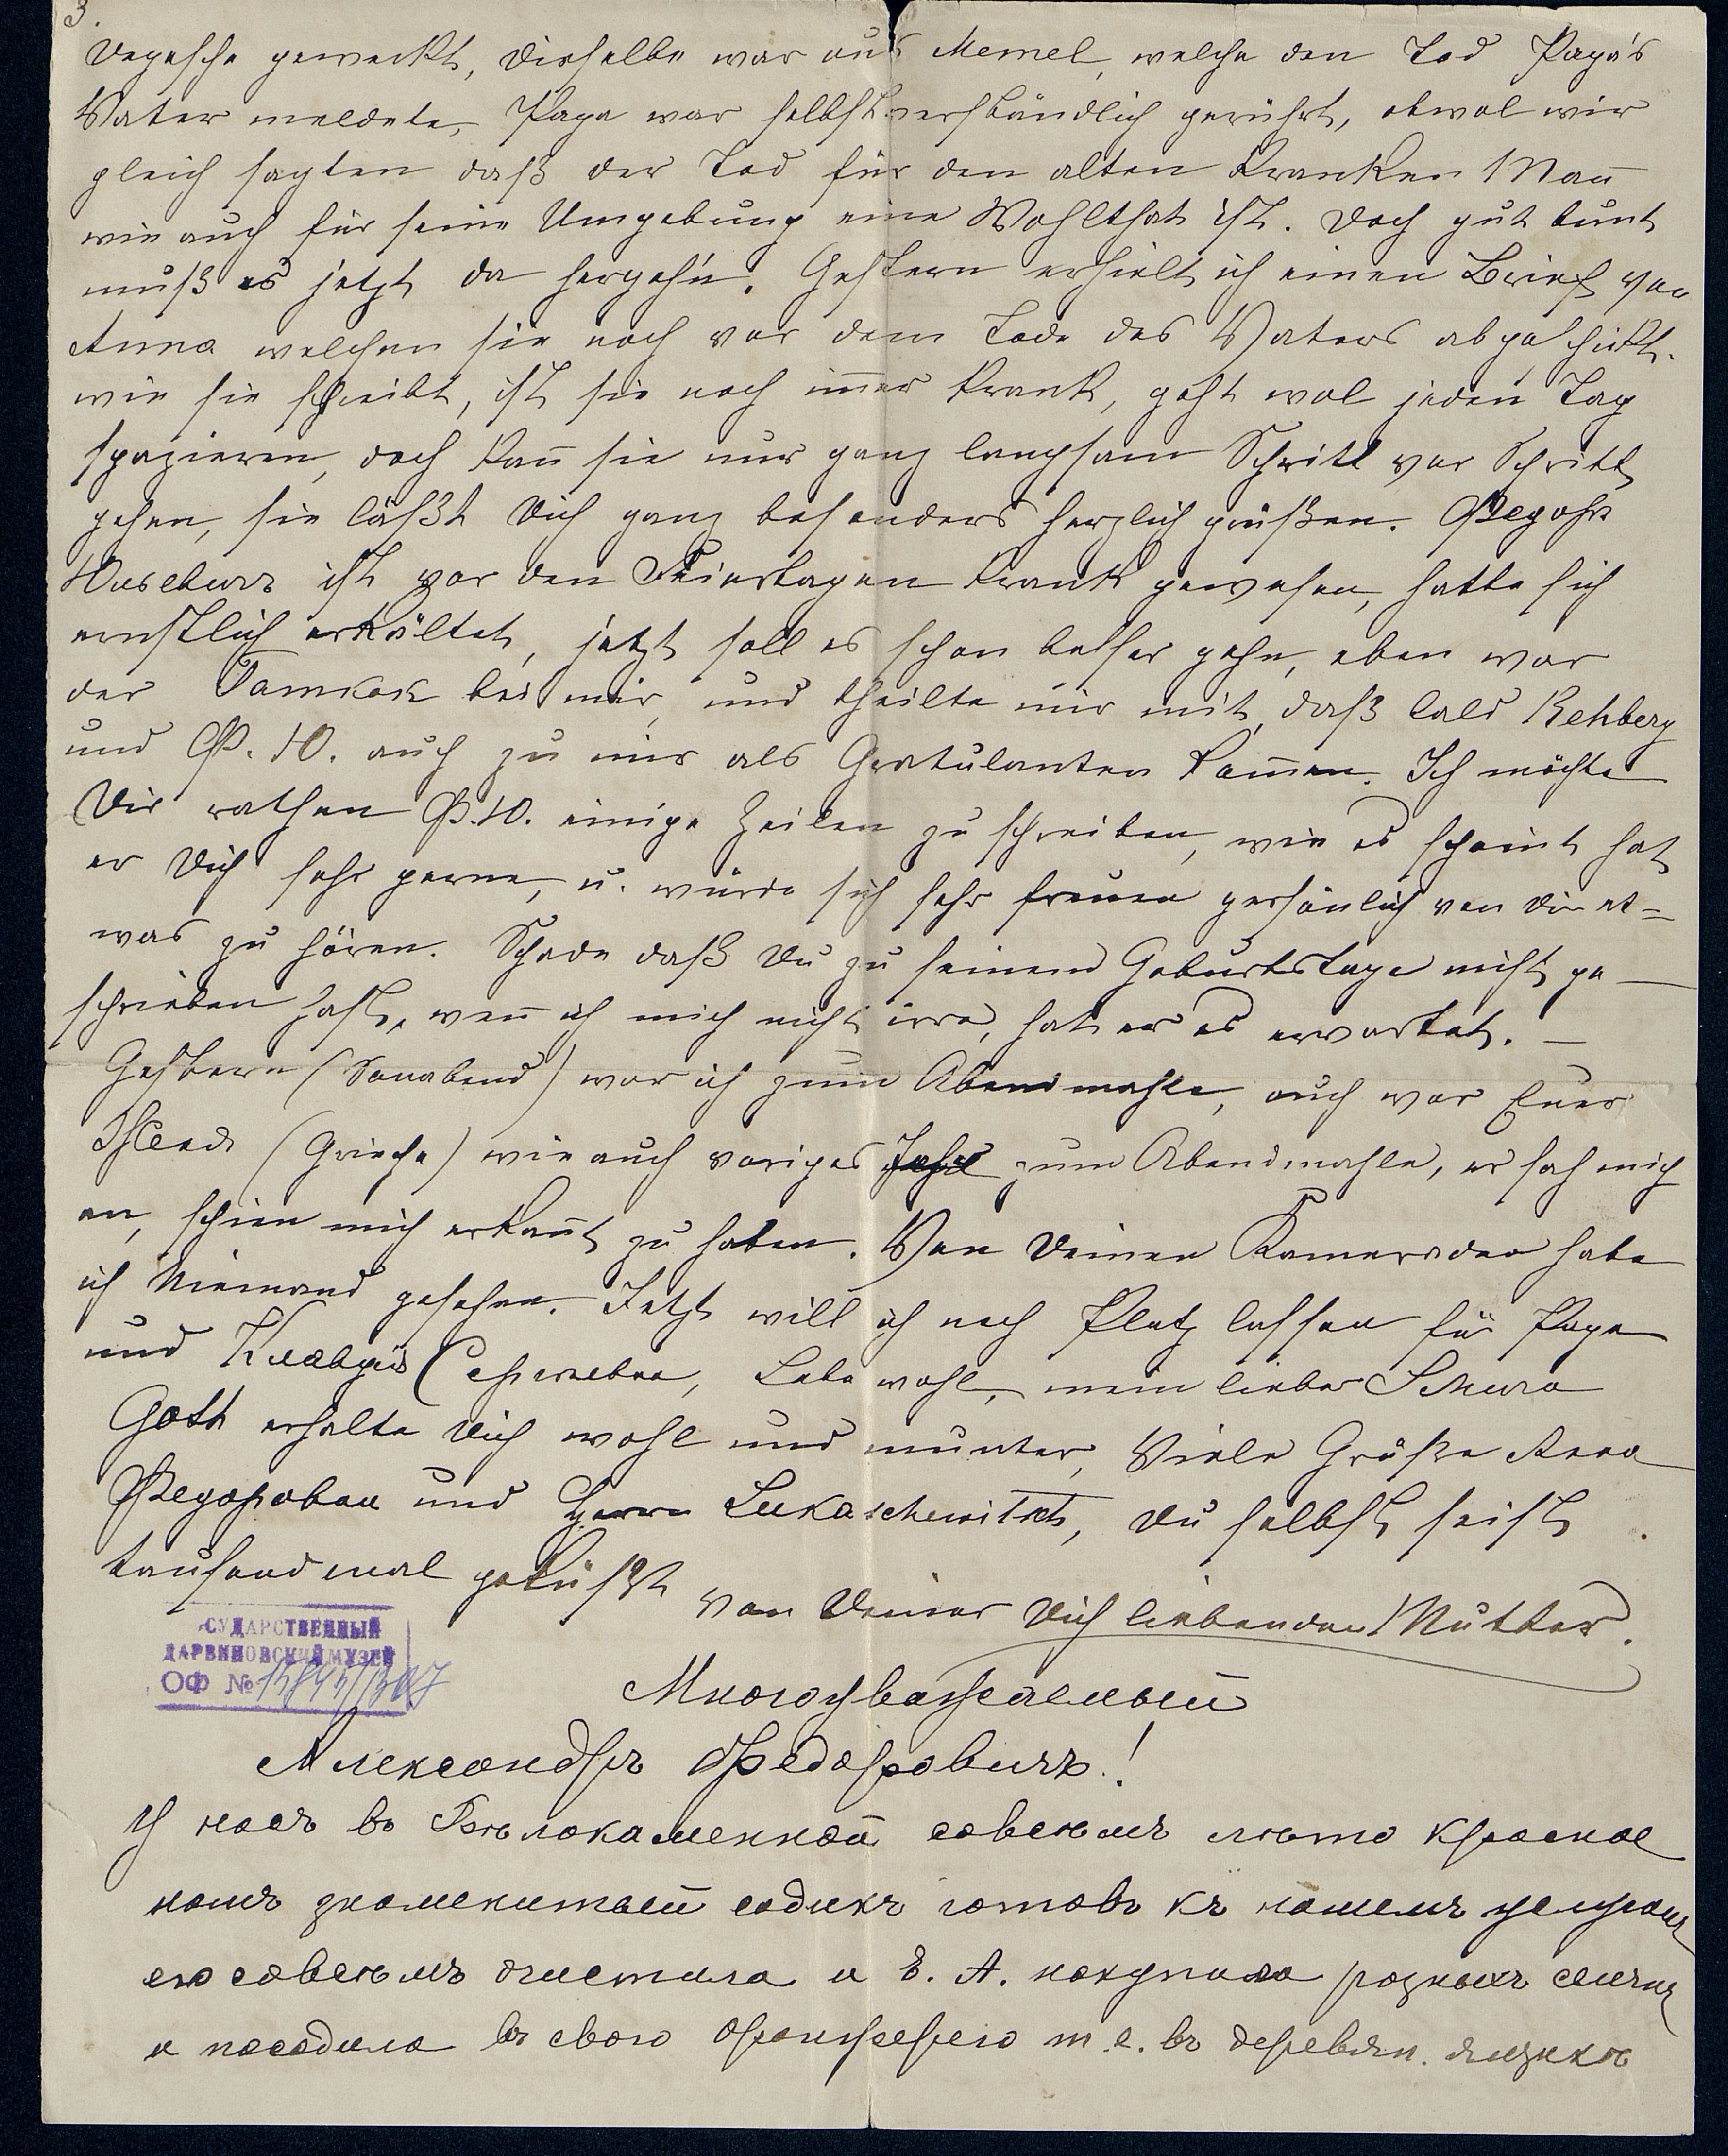 3.
Depesche geweckt, dieselbe war aus Memel, welche den Tod Papa's
Vater meldete, Papa war selbstverständlich gerührt, obwol wir
gleich sagten daß der Tod für den alten kranken Mann
wie auch für seine Umgebung eine Wohlthat ist. Doch gut bunt
muß es jetzt da hergeh'n. Gestern erhielt ich einen Brief von
Anna welchen sie noch vor dem Tode des Vaters abgeschickt.
wie sie schreibt, ist sie noch immer krank, geht wol jeden Tag
spazieren, doch kann sie nur ganz langsam Schritt vor Schritt
gehen, sie läßt Dich ganz besonders herzlich grüßen. Ѳедоръ
ist vor den Feiertagen krank gewesen, hatte sich
ernstlich erkältet, jetzt soll es schon besser gehn, eben war
der bei mir, und theilte mir mit, daß bald Rehberg
und Ѳ. Ю. auch zu mir als Gratulanten kommen. Ich möchte
Dir rathen Ѳ. Ю. einige Zeilen zu schreiben, wie es scheint hat
er Dich sehr gerne, u. würde sich sehr freuen persönlich von Dir et=
was zu hören. Schade daß Du zu seinem Geburtstage nicht ge—
schrieben hast, wenn ich mich nicht irre, hat er es erwartet. —
Gestern (Sonabend) war ich zum Abendmahle, auch war Euer
(Grieche) wie auch voriges Jahr zum Abendmahle, er sah mich
an, schien mich erkannt zu haben. Von Deinen Kameraden habe
ich Niemand gesehen. Jetzt will ich noch Platz lassen für Papa
und Клавдія Сергѣевна, Lebe wohl, mein lieber Schura
Gott erhalte Dich wohl und munter, Viele Grüße Анна
Ѳедоровна und Herrn Lukaschewitsch, Du selbst seist
tausend mal geküßt von Deiner Dich liebenden Mutter.
СУДАРСТВЕННЫЙ
ДАРВИНОВСКИЙ МУЗЕЙ
ОФ №
Многоуважаемый
Александръ Федоровичъ!
У насъ въ Бѣлокаменной совсѣмъ лѣто красное
нашъ знаменитый садикъ готовъ къ нашемъ
его совсѣмъ очистила и Е. А. накупила разныхъ
и посадила въ свою оранжерею т.е. въ деревян. ящикъ